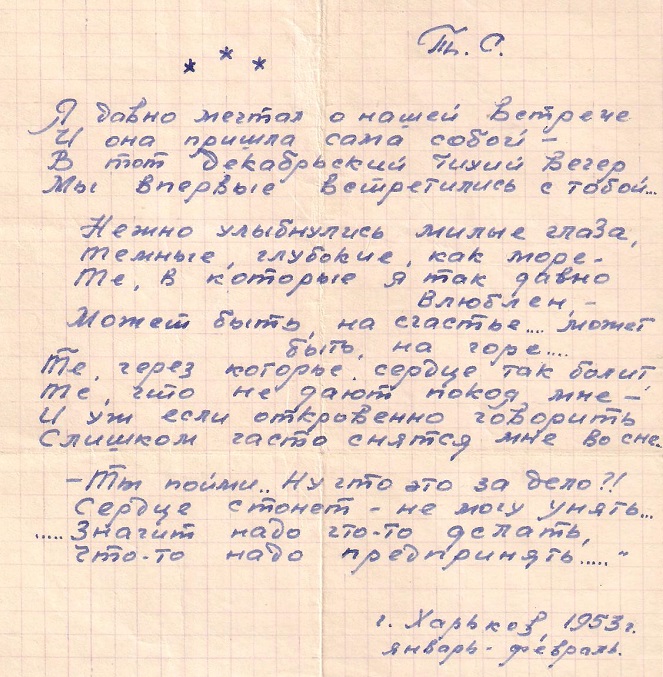 Тт. С.
* * *
Я давно мечтал о нашей встрече
И она пришла сама собой –
В тот декабрьский тихий вечер
Мы впервые встретились с тобой...
Нежно улыбнулись милые глаза,
Темные, глубокие, как море –
Те, в которые я так давно
влюблен, –
Может быть, на счастье.... может
быть, на горе....
Те, через которые сердце так болит,
Те, что не дают покоя мне –
И уж если откровенно говорить
Слишком часто снятся мне во сне..
– Ты пойми.. Ну что это за дело?!!
Сердце стонет – не могу унять...
..... Значит надо что-то делать,
Что-то надо предпринять....."
г. Харьков, 1953 г.
январь - февраль.